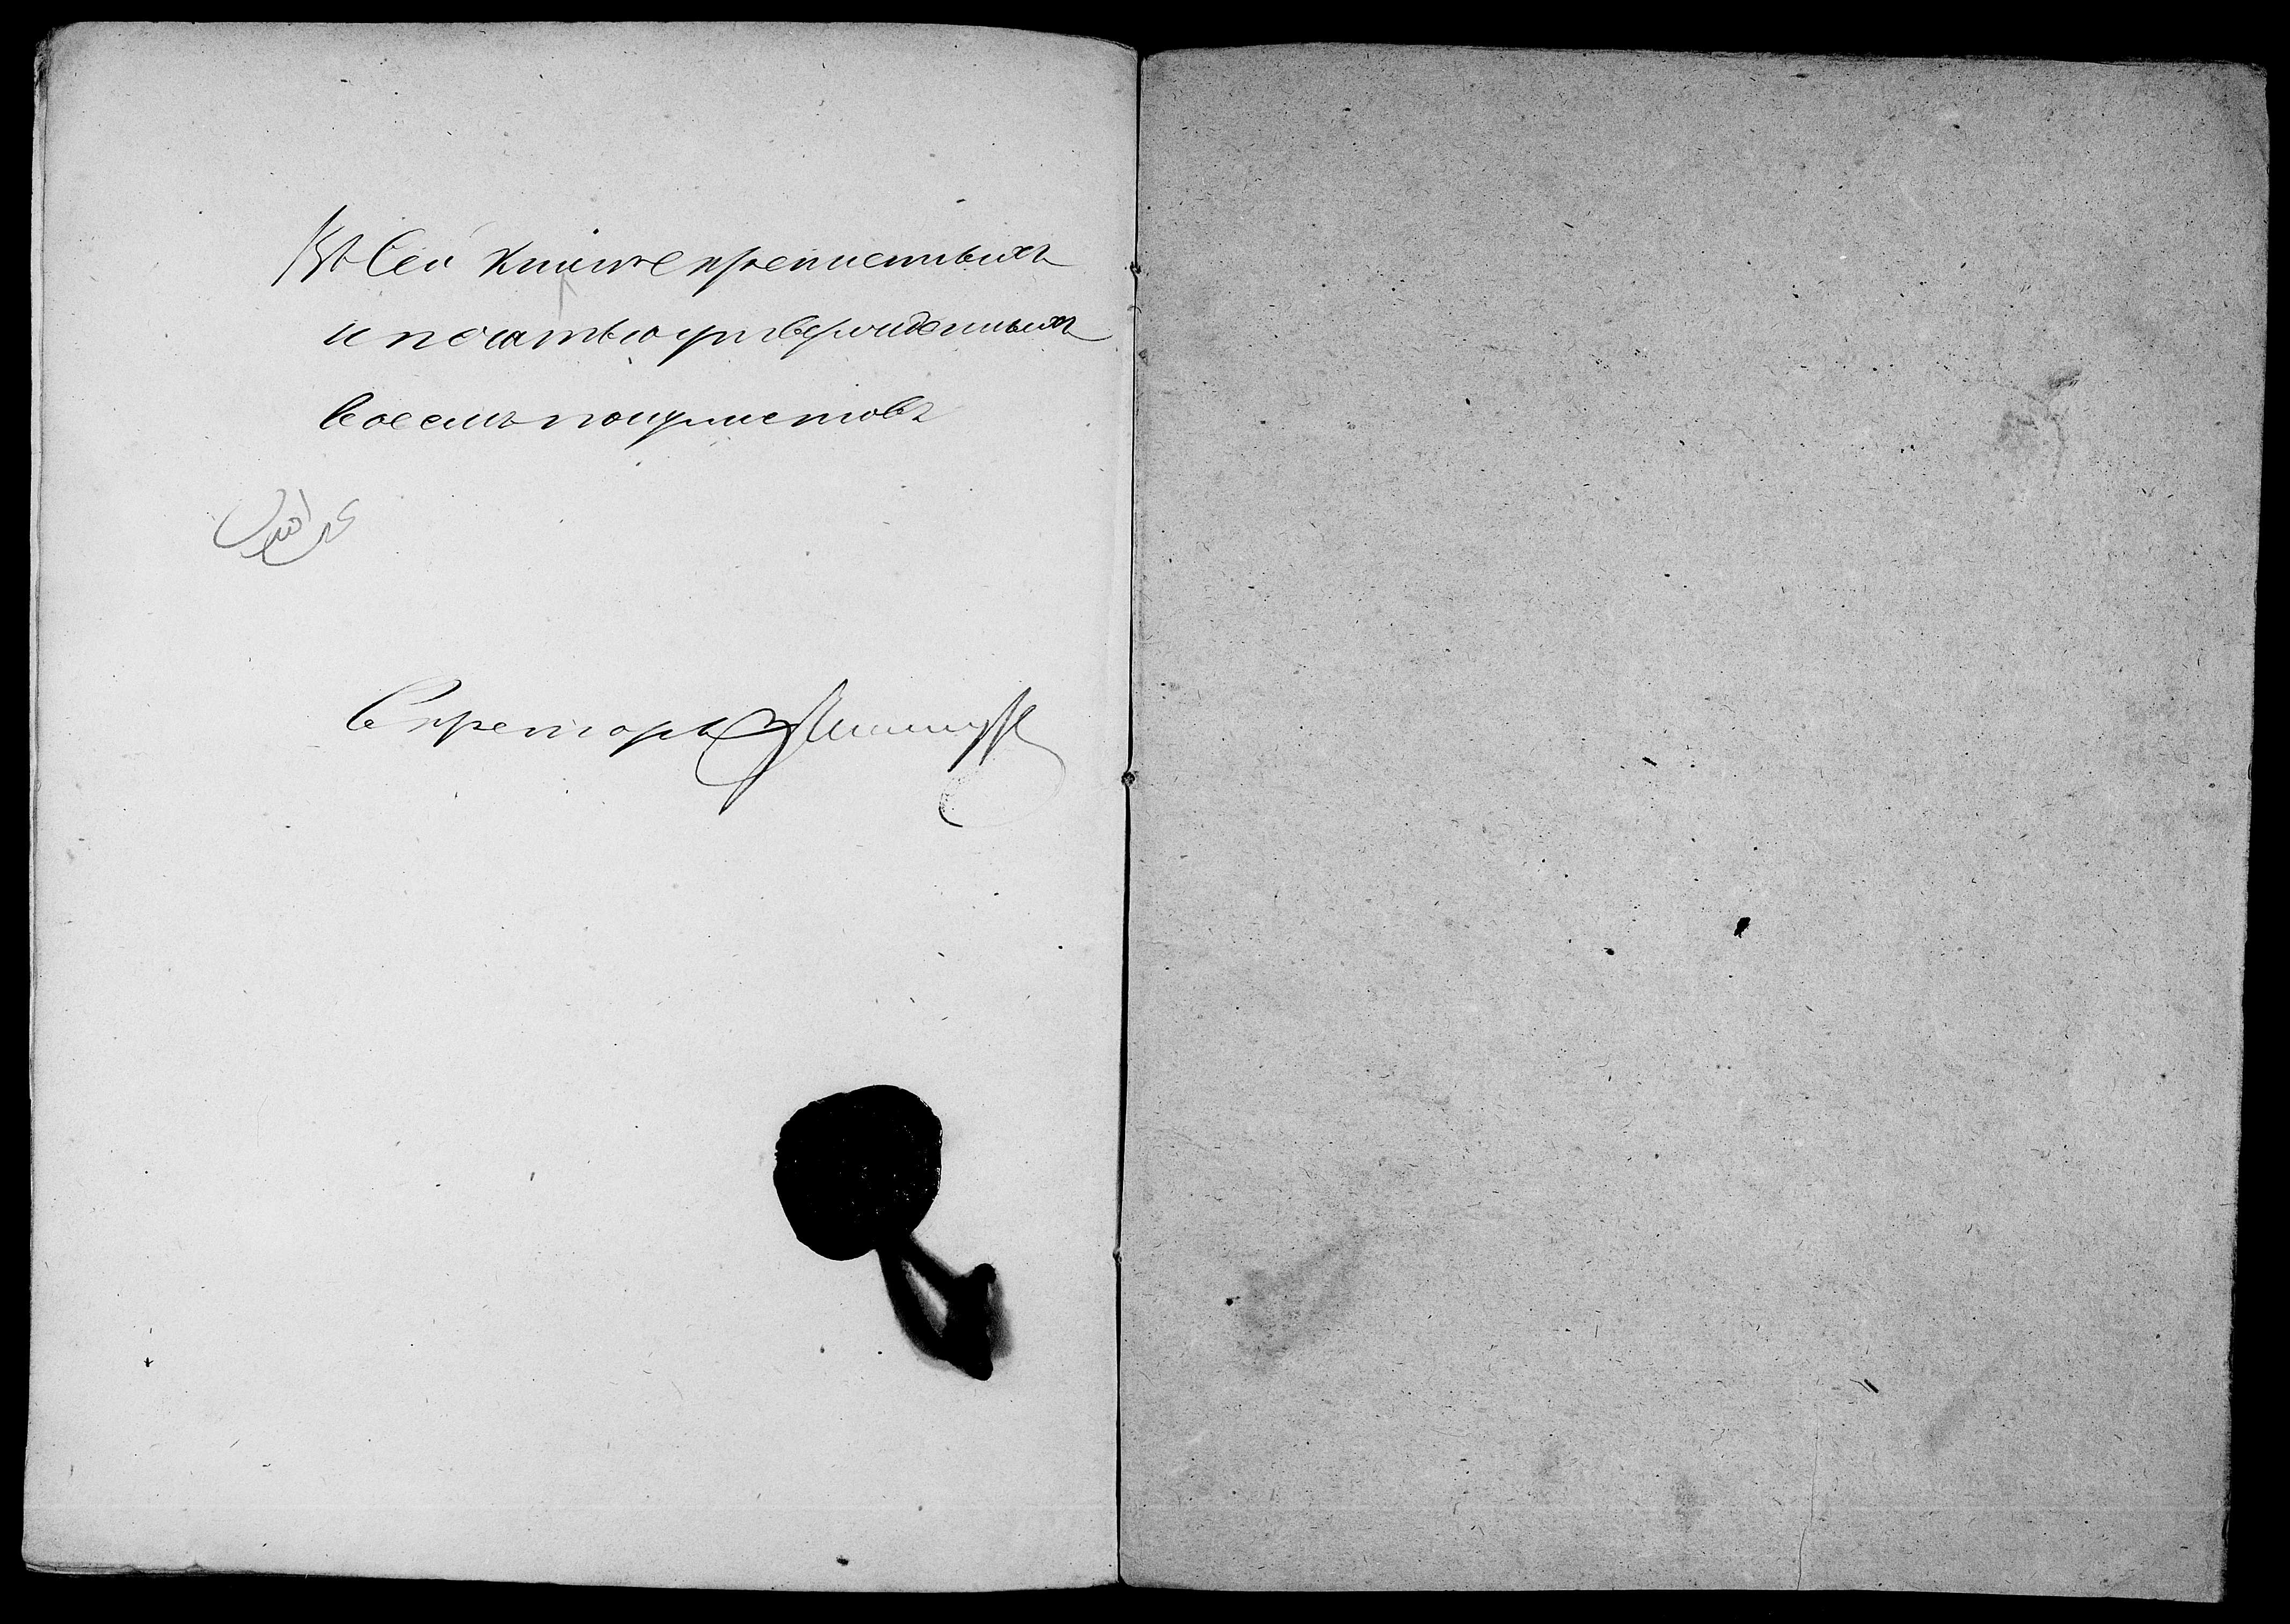 Въ сей книге крепистныхъ
и печатью утвержденныхъ
восемь полулистовъ
Секретарь